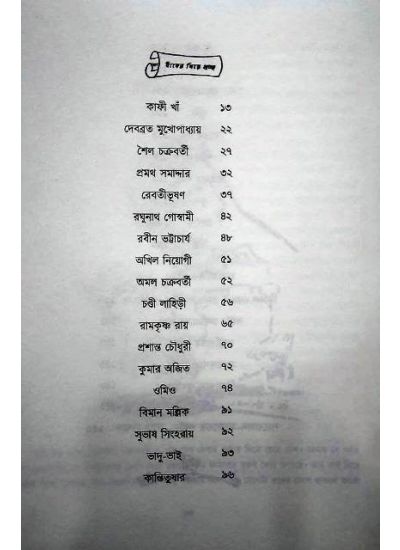 যাঁদের নিয়ে গ্রন্থ
কাফী খাঁ ১৩
দেবব্রত মুখোপাধ্যায় ২২
শৈল চক্রবর্তী ২৭
প্রমথ সমাদ্দার ৩২
রেবতীভূষণ ৩৭
রঘুনাথ গোস্বামী ৪২
রবীন ভট্টাচার্য ৪৮
অখিল নিয়োগী ৫১
অমল চক্রবর্তী ৫২
চণ্ডী লাহিড়ী ৫৬
রামকৃষ্ণ রায় ৬৫
প্রশান্ত চৌধুরী ৭০
কুমার অজিত ৭২
ওমিও ৭৪
বিমান মল্লিক ৯১
সুভাষ সিংহরায় ৯২
ভাদু-ভাই ৯৩
কান্তিতুষার ৯৬